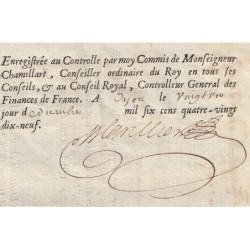 Enregistrée au Controlle par moy Commis de Monseigneur
Chamillart, Conseiller ordinaire du Roy en tous ses
Conseils, & au Conseil Royal, Controlleur General des
Finances de France. A Dijon le Vingt
jour de Decembre mil six cens quatre-vingt
dix-neuf.